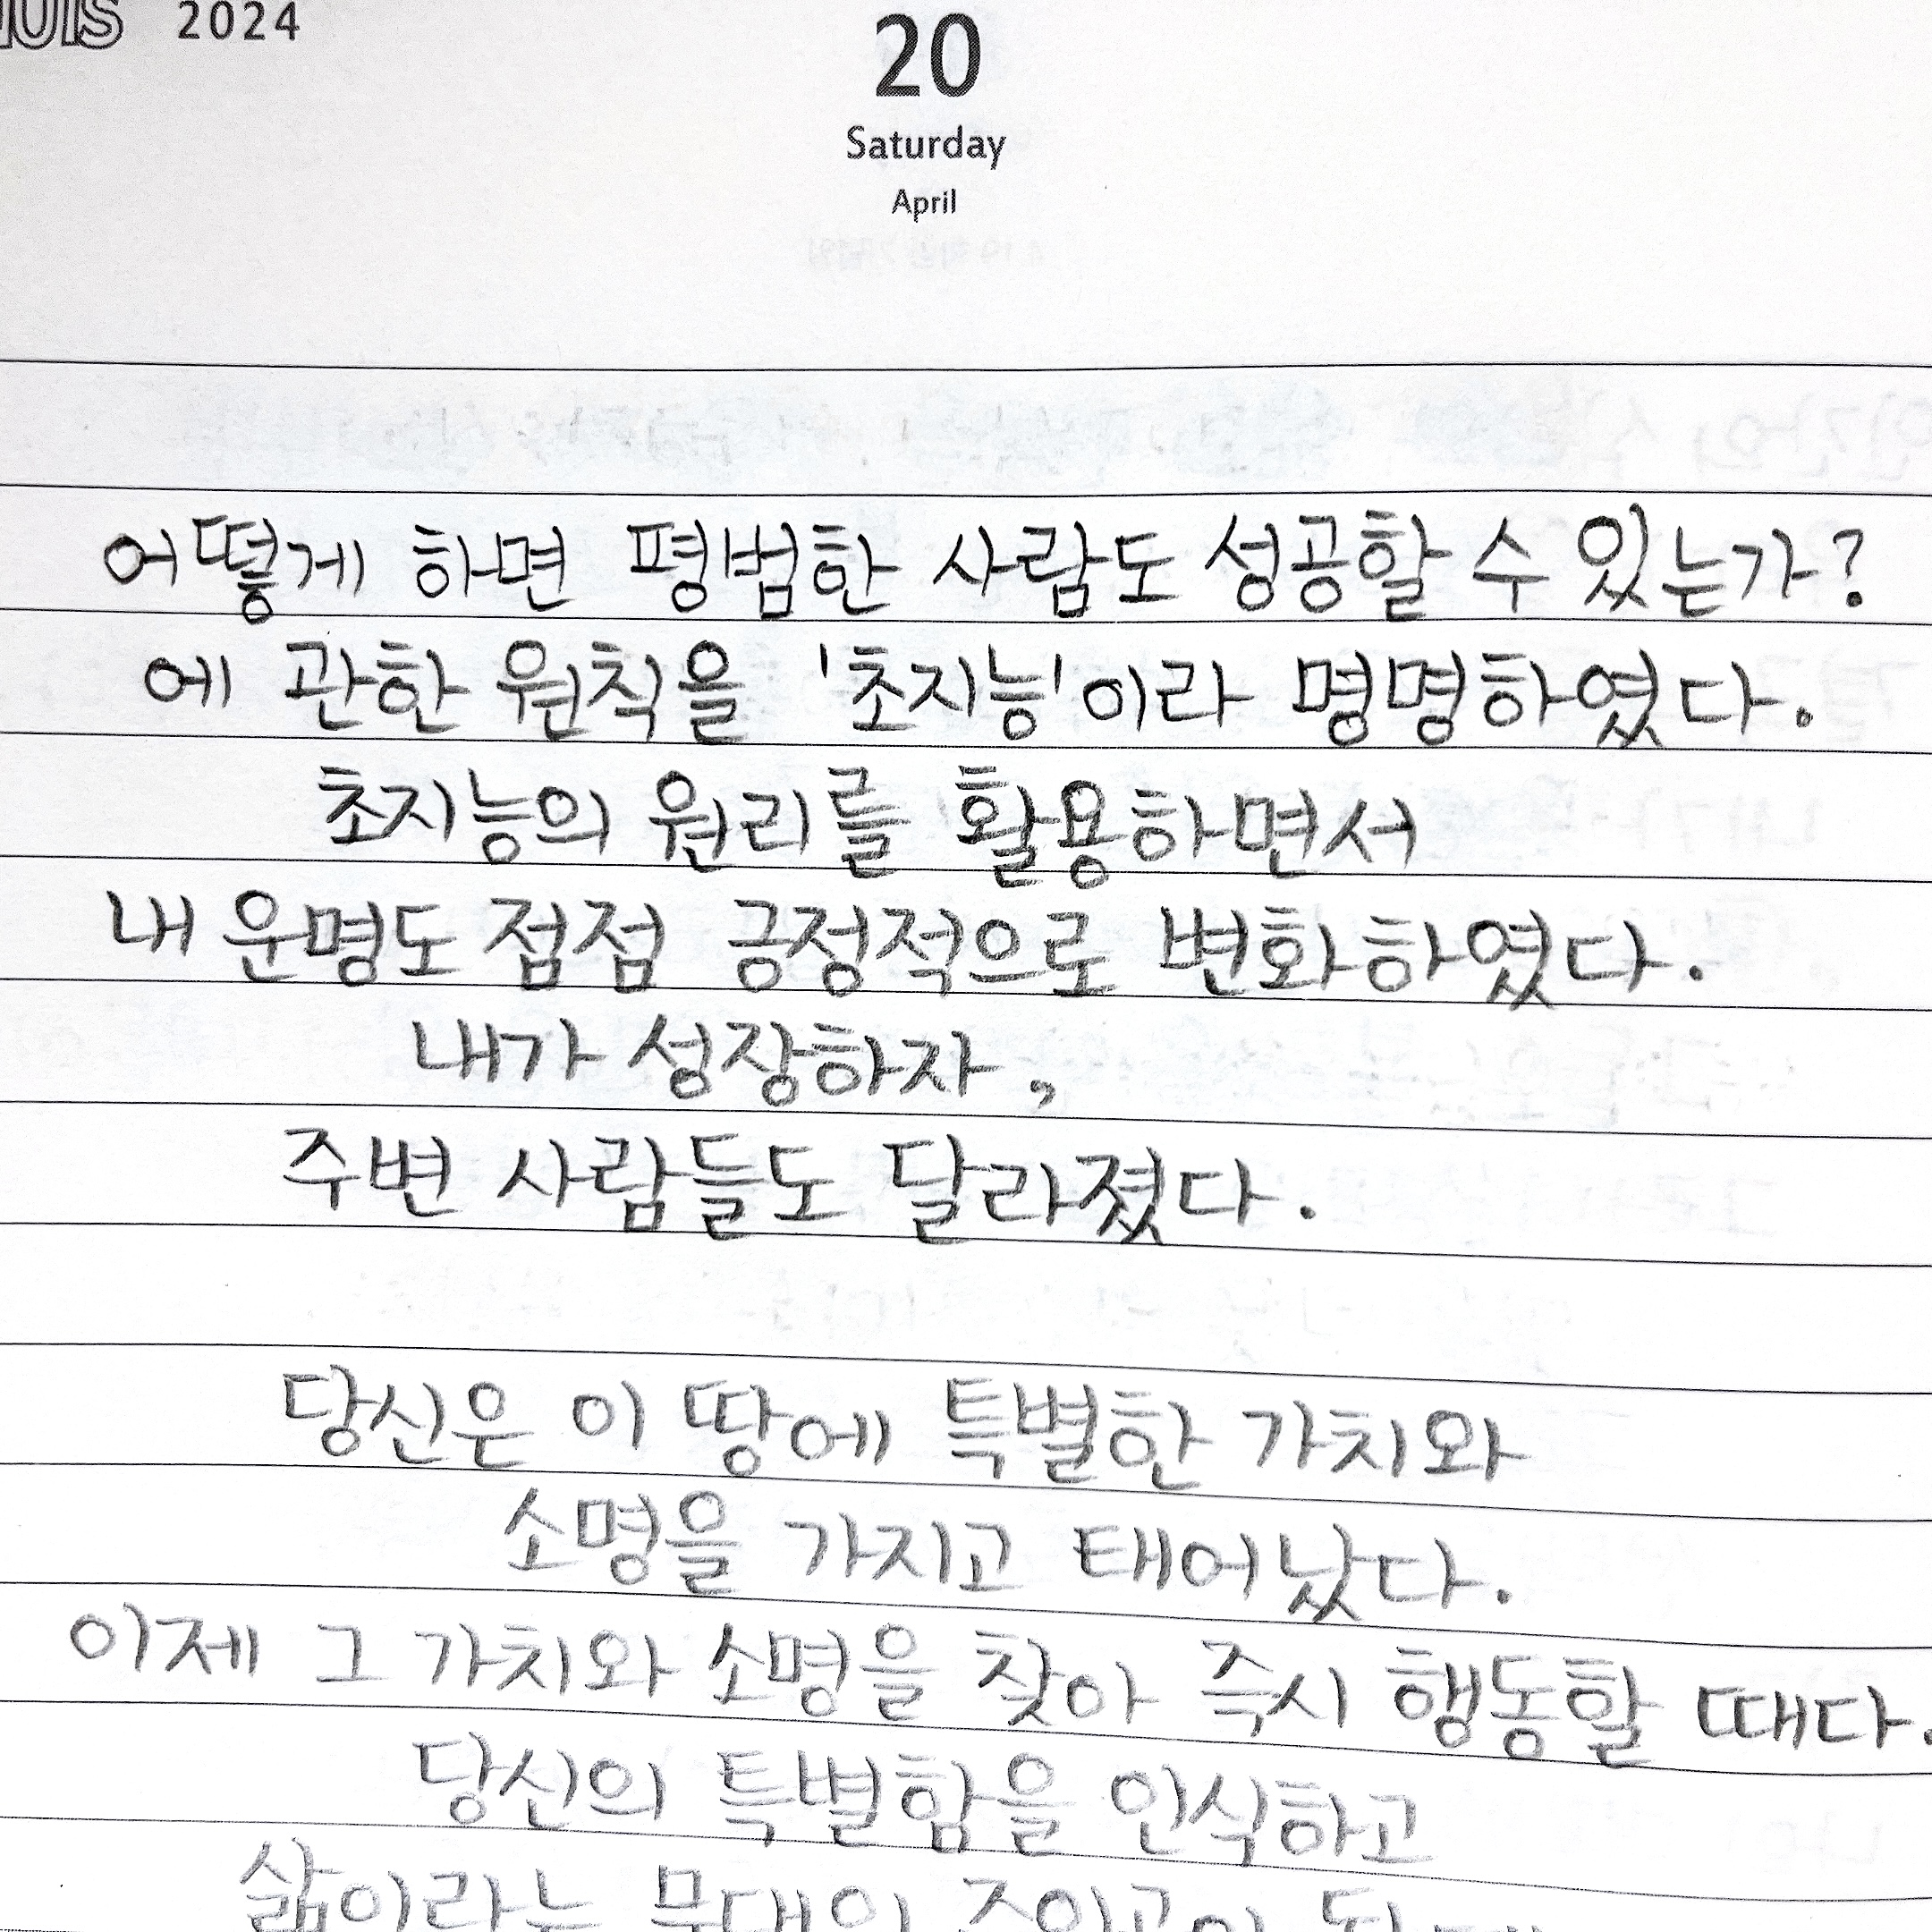 2024
20
Saturday
April
어떻게 하면 평범한 사람도 성공할 수 있는가?
에 관한 원칙을 '초지능'이라 명명하였다.
초지능의 원리를 활용하면서
내 운명도 점점 긍정적으로 변화하였다.
내가 성장하자,
주변 사람들도 달라졌다.
당신은 이 땅에 특별한 가치와
소명을 가지고 태어났다.
이제 그 가치와 소명을 찾아 즉시 행동할 때다.
당신의 특별함을 인식하고
삶이라는 무대의 주인공이